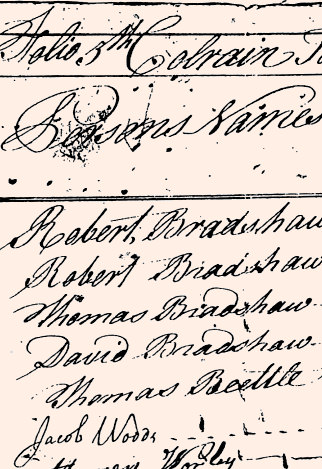 Folio 5th Colrain
Persons Names
Robert Bradshaw
Robert Bradshaw
Thomas Bradshaw
David Bradshaw
Thomas Beettle
Jacob Woods